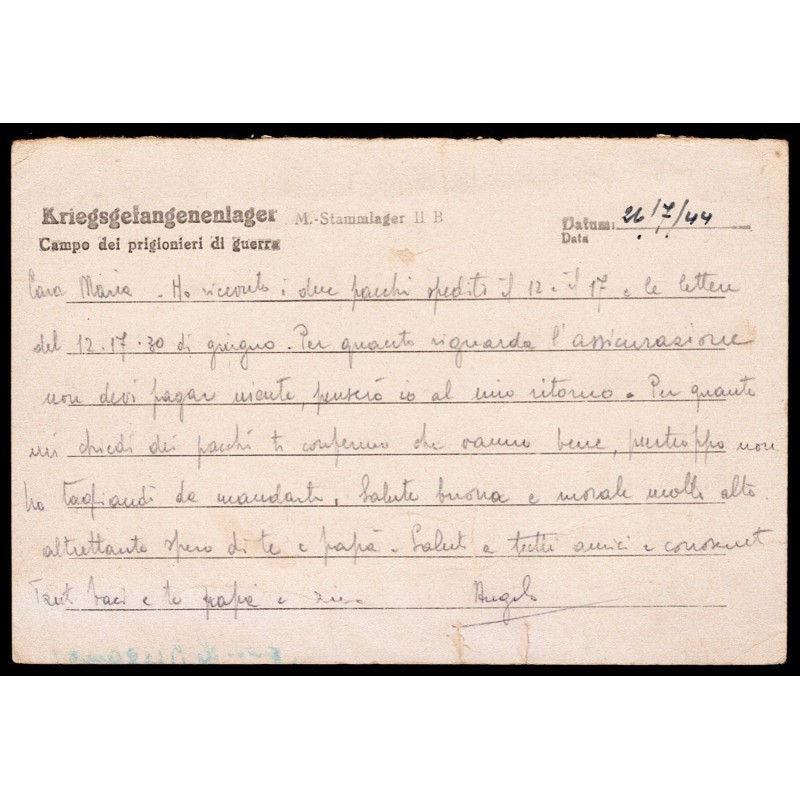 Kriegsgefangenenlager M.-Stammlager II B Datum: 26/7/44
Campo dei prigionieri di guerra Data
Cara Maria - Ho ricevuto i due pacchi spediti il 12 e il 17 e le lettere
del 12.17.30 di giugno. Per quanto riguarda l'assicurazione
non devi pagar niente, penserò io al mio ritorno. Per quanto
mi chiedi dei pacchi ti confermo che vanno bene, purtroppo non
ho tagliandi da mandarti. Salute buona e morale molto alto.
altrettanto spero di te e papà. Saluti a tutti amici e conoscenti
Tanti baci a te papà e zia Angelo